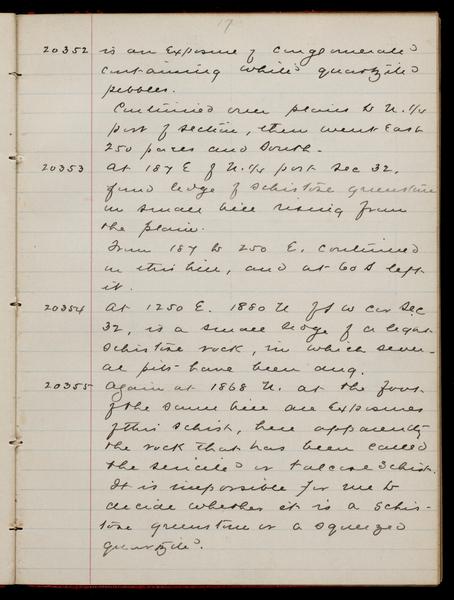 17
20352 is an Exposure of conglomerate
containing white quartzite
pebbles.
Continued over plains to N. 1/4
post of section, then went East
250 paces and South.
20353 At 187 E of N. 1/4 post Sec 32,
found ledge of schistose greenstone
in small hill rising from
the plain.
From 187 to 250 E. continued
on this hill, and at 60 S left
it.
20354 At 1250 E. 1880 N of S W cor Sec
32, is a small ledge of a light
schistose rock, in which sever-
al pits have been dug.
20355 Again at 1868 N. at the foot
of the same hill are Exposures
of this schist, here apparently
the rock that has been called
the sericite or talcose schist.
It is impossible for me to
decide whether it is a schis-
tose greenstone or a squeezed
quartzite.